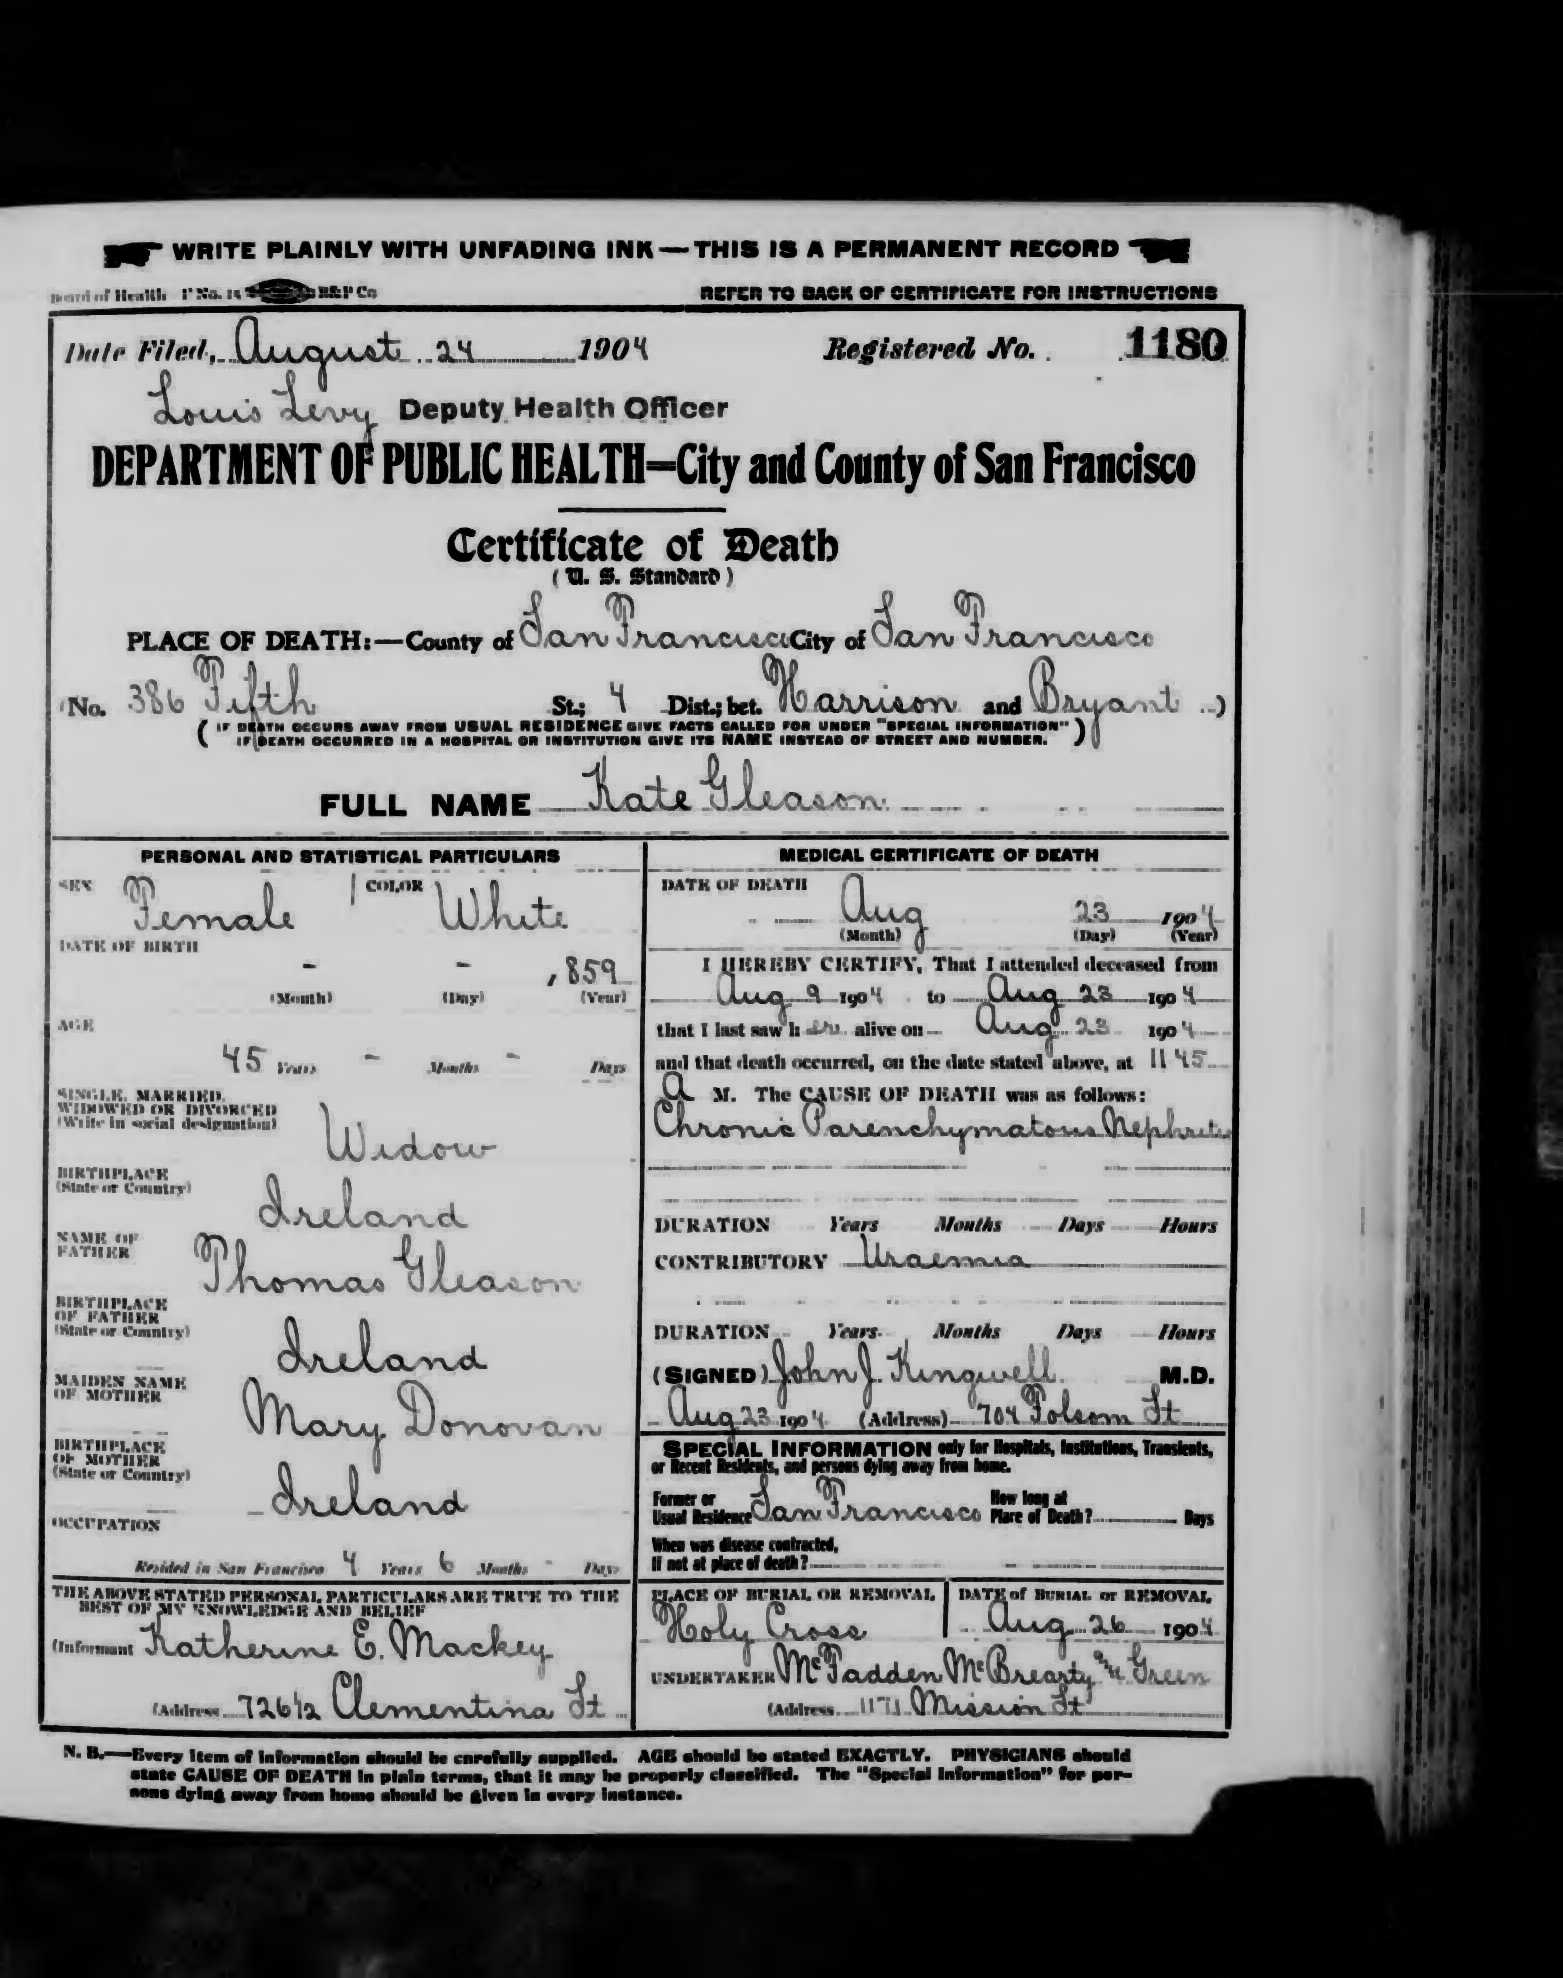 WRITE PLAINLY WITH UNFADING INK—THIS IS A PERMANENT RECORD
Board of Health F No. 14 B&P Co
REFER TO BACK OF CERTIFICATE FOR INSTRUCTIONS
Date Filed, August 24 1904 Registered No. 1180
Louis Levy Deputy Health Officer
DEPARTMENT OF PUBLIC HEALTH—City and County of San Francisco
Certificate of Death
(U. S. Standard)
PLACE OF DEATH:—County of San Francisco City of San Francisco
(No. 386 Fifth St.; 4 Dist.; bet. Harrison and Bryant )
( IF DEATH OCCURS AWAY FROM USUAL RESIDENCE GIVE FACTS CALLED FOR UNDER "SPECIAL INFORMATION" )
( IF DEATH OCCURRED IN A HOSPITAL OR INSTITUTION GIVE ITS NAME INSTEAD OF STREET AND NUMBER. )
FULL NAME Kate Gleason
PERSONAL AND STATISTICAL PARTICULARS
SEX Female COLOR White
DATE OF BIRTH
- - 1859
(Month) (Day) (Year)
AGE
45 Years - Months - Days
SINGLE, MARRIED,
WIDOWED OR DIVORCED
(Write in social designation)
Widow
BIRTHPLACE
(State or Country)
Ireland
NAME OF
FATHER
Thomas Gleason
BIRTHPLACE
OF FATHER
(State or Country)
Ireland
MAIDEN NAME
OF MOTHER
Mary Donovan
BIRTHPLACE
OF MOTHER
(State or Country)
Ireland
OCCUPATION
Resided in San Francisco 4 Years 6 Months - Days
THE ABOVE STATED PERSONAL PARTICULARS ARE TRUE TO THE
BEST OF MY KNOWLEDGE AND BELIEF
(Informant Katherine E. Mackey
(Address 726½ Clementina St
MEDICAL CERTIFICATE OF DEATH
DATE OF DEATH
Aug 23 1904
(Month) (Day) (Year)
I HEREBY CERTIFY, That I attended deceased from
Aug 9 1904 to Aug 23 1904
that I last saw her alive on Aug 23 1904
and that death occurred, on the date stated above, at 11 45
A M. The CAUSE OF DEATH was as follows:
Chronic Parenchymatous Nephritis
DURATION Years Months Days Hours
CONTRIBUTORY Uraemia
DURATION Years Months Days Hours
(SIGNED) John J. Kingwell M.D.
Aug 23 1904 (Address) 704 Folsom St
SPECIAL INFORMATION only for Hospitals, Institutions, Transients,
or Recent Residents, and persons dying away from home.
Former or
Usual Residence San Francisco
How long at
Place of Death? Days
When was disease contracted,
If not at place of death?
PLACE OF BURIAL OR REMOVAL
Holy Cross
DATE of BURIAL or REMOVAL
Aug 26 1904
UNDERTAKER McFadden McBrearty & Green
(Address 1171 Mission St
N. B.—Every item of information should be carefully supplied. AGE should be stated EXACTLY. PHYSICIANS should
state CAUSE OF DEATH in plain terms, that it may be properly classified. The "Special Information" for per-
sons dying away from home should be given in every instance.